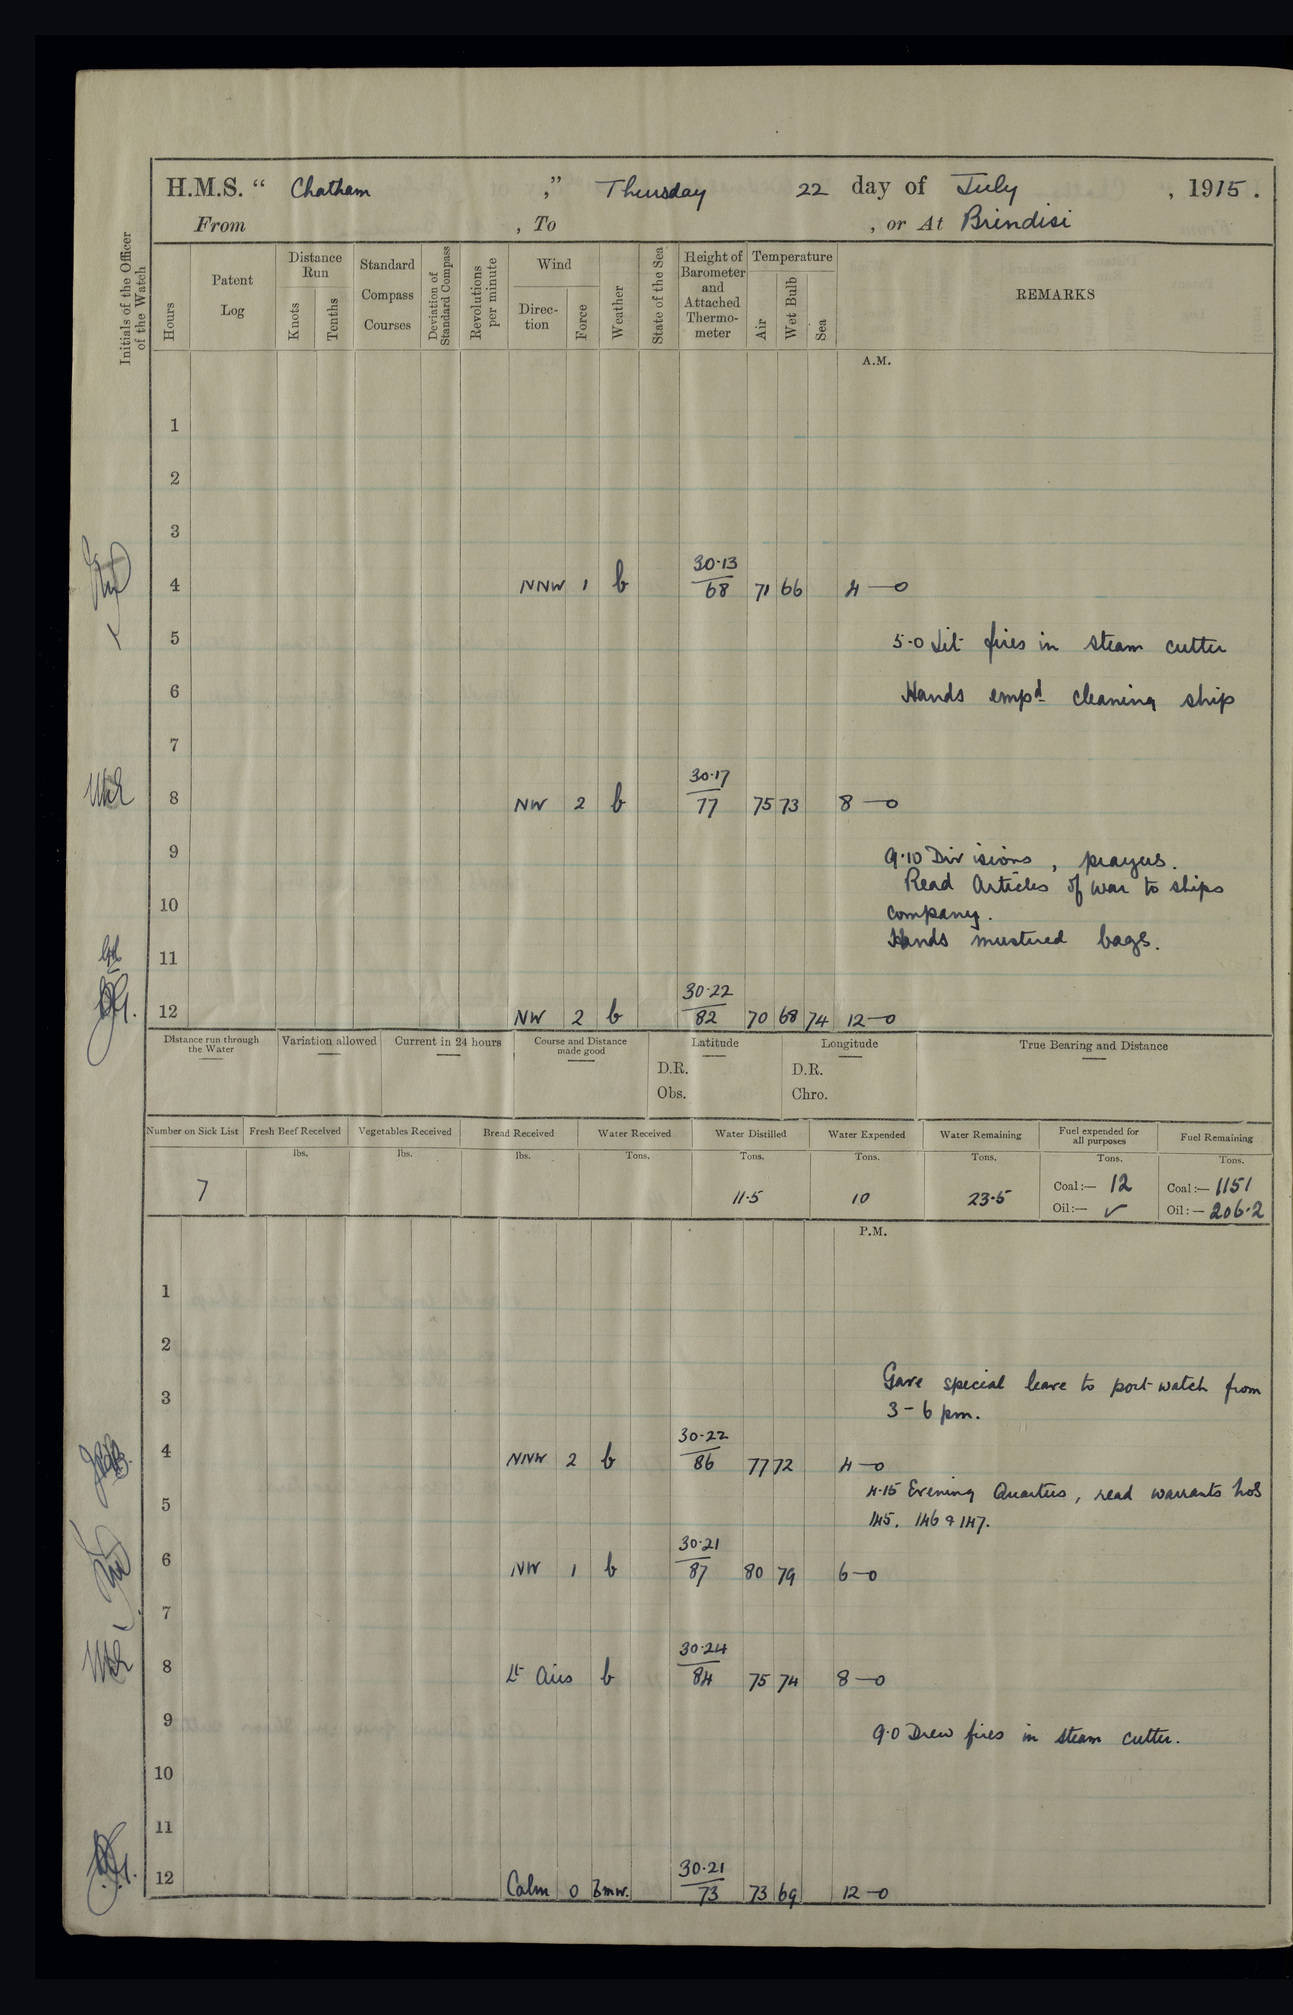 H.M.S. “ Chatham ,” Thursday 22 day of July , 1915 .
From , To , or At Brindisi
Initials of the Officer of the Watch
Hours
Patent Log
Distance Run
Knots
Tenths
Standard Compass Courses
Deviation of Standard Compass
Revolutions per minute
Wind
Direc-tion
Force
Weather
State of the Sea
Height of Barometer and Attached Thermo-meter
Temperature
Air
Wet Bulb
Sea
REMARKS
A.M.
1
2
3
30·13
4 NNW 1 b 68 71 66 4—0
5 5-0 Lit fires in steam cutter
6 Hands empd cleaning ship
7
30·17
8 NW 2 b 77 75 73 8—0
9 9·10 Divisions, prayers.
Read Articles of War to ships
10 company.
Hands mustered bags.
11
30·22
12 NW 2 b 82 70 68 74 12—0
Distance run through the Water
Variation allowed
Current in 24 hours
Course and Distance made good
Latitude
D.R.
Obs.
Longitude
D.R.
Chro.
True Bearing and Distance
Number on Sick List Fresh Beef Received Vegetables Received Bread Received Water Received Water Distilled Water Expended Water Remaining Fuel expended for all purposes Fuel Remaining
lbs. lbs. lbs. Tons. Tons. Tons. Tons. Tons. Tons.
7 11·5 10 23·5 Coal:— 12 Coal:— 1151
Oil:— ✓ Oil:— 206·2
P.M.
1
2
Gave special leave to port watch from
3 3-6 pm.
30·22
4 NNW 2 b 86 77 72 4—0
4·15 Evening Quarters, read warrants Nos
5 145, 146 & 147.
30·21
6 NW 1 b 87 80 79 6—0
7
30·24
8 Lt Airs b 84 75 74 8—0
9 9·0 Drew fires in steam cutter.
10
11
30·21
12 Calm 0 bmw. 73 73 69 12—0